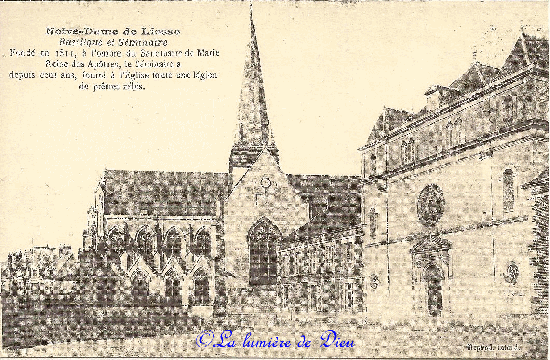 Notre-Dame de Liesse
Basilique et Séminaire
Fondé en 1811, à l'ombre du Sanctuaire de Marie
Reine des Apôtres, le Séminaire a
depuis cent ans, fourni à l'Eglise toute une légion
de prêtres zélés.
©La lumière de Dieu